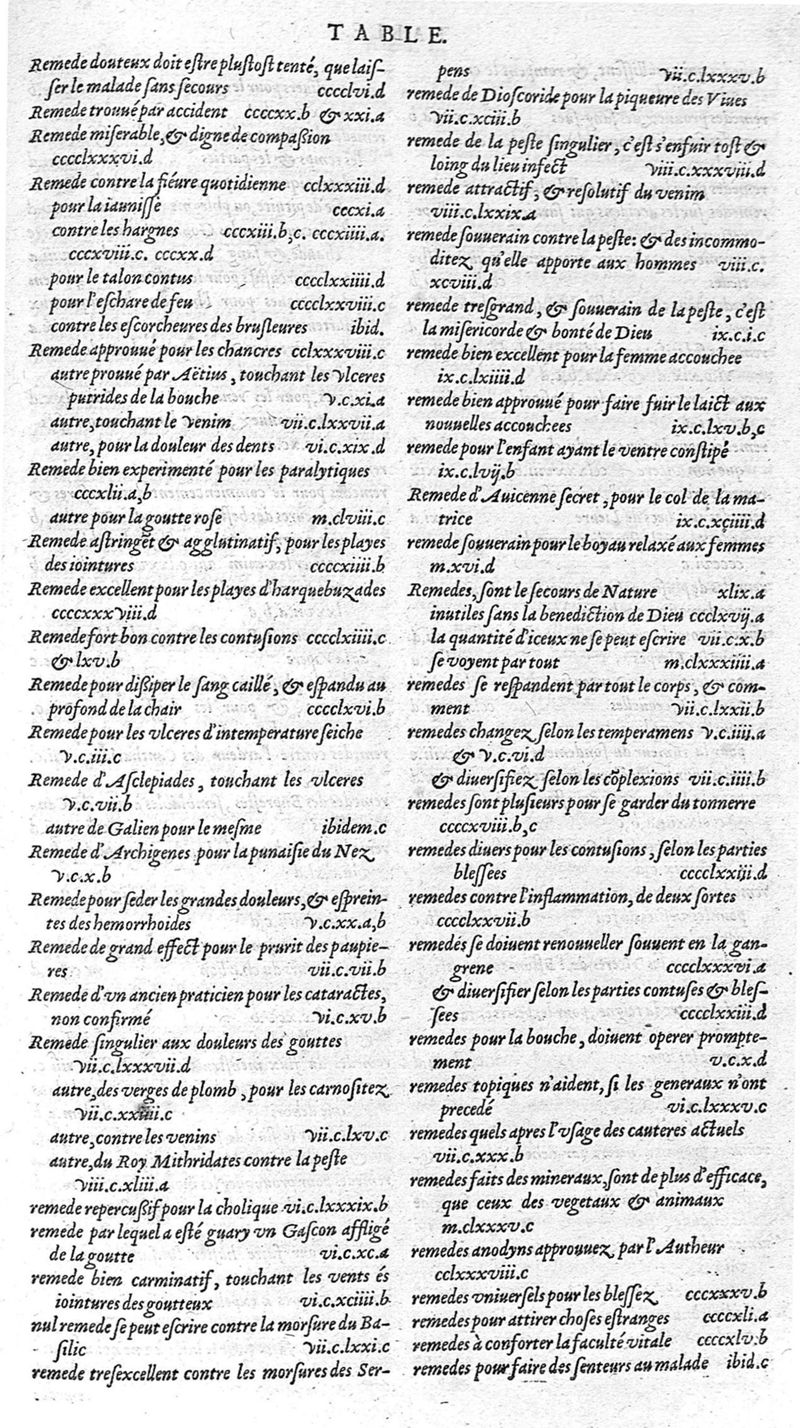 TABLE.
Remede douteux doit eſtre pluſtoſt tenté, que laiſ-
ſer le malade ſans ſecours cccclvi.d
Remede trouué par accident ccccxx.b & xxi.a
Remede miſerable, & digne de compaßion
cccclxxxvi.d
Remede contre la fiéure quotidienne cclxxxiii.d
pour la iauniſſe cccxi.a
contre les hargnes cccxiii.b,c. cccxiiii.a.
cccxviii.c. cccxx.d
pour le talon contus cccclxxiiii.d
pour l'eſchare de feu cccclxxviii.c
contre les eſcorcheures des bruſleures ibid.
Remede approuué pour les chancres cclxxxviii.c
autre prouué par Aëtius, touchant les vlceres
putrides de la bouche v.c.xi.a
autre, touchant le venim vii.c.lxxvii.a
autre, pour la douleur des dents vi.c.xix.d
Remede bien experimenté pour les paralytiques
cccxlii.a,b
autre pour la goutte roſe m.clviii.c
Remede aſtringẽt & agglutinatif, pour les playes
des iointures ccccxiiii.b
Remede excellent pour les playes d'harquebuzades
ccccxxxviii.d
Remede fort bon contre les contuſions cccclxiiii.c
& lxv.b
Remede pour dißiper le ſang caillé, & eſpandu au
profond de la chair cccclxvi.b
Remede pour les vlceres d'intemperature ſeiche
v.c.iii.c
Remede d'Aſclepiades, touchant les vlceres
v.c.vii.b
autre de Galien pour le meſme ibidem.c
Remede d'Archigenes pour la punaiſie du Nez
v.c.x.b
Remede pour ſeder les grandes douleurs, & eſprein-
tes des hemorrhoides v.c.xx.a,b
Remede de grand effect pour le prurit des paupie-
res vii.c.vii.b
Remede d'vn ancien praticien pour les cataractes,
non confirmé vi.c.xv.b
Remede ſingulier aux douleurs des gouttes
vii.c.lxxxvii.d
autre, des verges de plomb, pour les carnoſitez
vii.c.xxiiii.c
autre, contre les venins vii.c.lxv.c
autre, du Roy Mithridates contre la peſte
viii.c.xliii.a
remede repercußif pour la cholique vi.c.lxxxix.b
remede par lequel a eſté guary vn Gaſcon affligé
de la goutte vi.c.xc.a
remede bien carminatif, touchant les vents és
iointures des goutteux vi.c.xciiii.b
nul remede ſe peut eſcrire contre la morſure du Ba-
ſilic vii.c.lxxi.c
remede treſexcellent contre les morſures des Ser-
pens vii.c.lxxxv.b
remede de Dioſcoride pour la piqueure des Viues
vii.c.xciii.b
remede de la peſte ſingulier, c'eſt s'enfuir toſt &
loing du lieu infect viii.c.xxxviii.d
remede attractif, & reſolutif du venim
viii.c.lxxix.a
remede ſouuerain contre la peſte: & des incommo-
ditez qu'elle apporte aux hommes viii.c.
xcviii.d
remede treſgrand, & ſouuerain de la peſte, c'eſt
la miſericorde & bonté de Dieu ix.c.i.c
remede bien excellent pour la femme accouchee
ix.c.lxiiii.d
remede bien approuué pour faire fuir le laict aux
nouuelles accouchees ix.c.lxv.b,c
remede pour l'enfant ayant le ventre conſtipé
ix.c.lvij.b
Remede d'Auicenne ſecret, pour le col de la ma-
trice ix.c.xciiii.d
remede ſouuerain pour le boyau relaxé aux femmes
m.xvi.d
Remedes, ſont le ſecours de Nature xlix.a
inutiles ſans la benediction de Dieu ccclxvij.a
la quantité d'iceux ne ſe peut eſcrire vii.c.x.b
ſe voyent par tout m.clxxxiiii.a
remedes ſe reſpandent par tout le corps, & com-
ment vii.c.lxxii.b
remedes changez ſelon les temperamens v.c.iiij.a
& v.c.vi.d
& diuerſifiez ſelon les cõplexions vii.c.iiii.b
remedes ſont pluſieurs pour ſe garder du tonnerre
ccccxviii.b,c
remedes diuers pour les contuſions, ſelon les parties
bleſſees cccclxxiij.d
remedes contre l'inflammation, de deux ſortes
cccclxxvii.b
remedes ſe doiuent renouueller ſouuent en la gan-
grene cccclxxxvi.a
& diuerſifier ſelon les parties contuſes & bleſ-
ſees cccclxxiii.d
remedes pour la bouche, doiuent operer prompte-
ment v.c.x.d
remedes topiques n'aident, ſi les generaux n'ont
precedé vi.c.lxxxv.c
remedes quels apres l'vſage des cauteres actuels
vii.c.xxx.b
remedes faits des mineraux, ſont de plus d'efficace,
que ceux des vegetaux & animaux
m.clxxxv.c
remedes anodyns approuuez par l'Autheur
cclxxxviii.c
remedes vniuerſels pour les bleſſez ccccxxxv.b
remedes pour attirer choſes eſtranges ccccxli.a
remedes à conforter la faculté vitale ccccxlv.b
remedes pour faire des ſenteurs au malade ibid.c